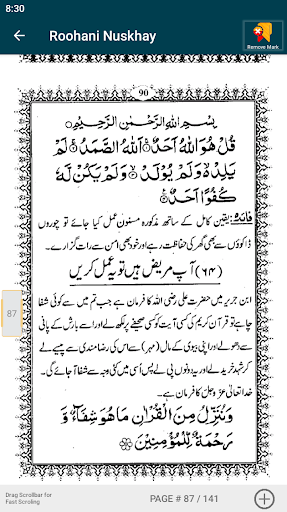 8:30
Roohani Nuskhay
Remove Mark
90
بِسْمِ اللهِ الرَّحْمٰنِ الرَّحِيْمِ
قُلْ هُوَ اللهُ اَحَدٌ ۚ اَللهُ الصَّمَدُ ۚ لَمْ
يَلِدْ ۙ وَلَمْ يُوْلَدْ ۙ وَلَمْ يَكُنْ لَّهٗ
كُفُوًا اَحَدٌ
فائدہ: یقین کامل کے ساتھ مذکورہ مسنون عمل کیا جائے تو چوروں
ڈاکوؤں سے بھی گھر کی حفاظت رہے اور خود بھی امن سے رات گزارے۔
(۶۴) آپ مریض ہیں تو یہ عمل کریں
ابن جریر میں حضرت علی رضی اللہ کا فرمان ہے جب تم میں سے کوئی شفا
چاہے تو قرآن کریم کی کسی آیت کو کسی صحیفے پر لکھ لے اور اسے بارش کے پانی
سے دھولے اور اپنی بیوی کے مال (مہر) سے اس کی رضا مندی سے پیسے لے
کر شہد خرید لے اور یہ دونوں پی لے پس اس میں کئی وجہ سے شفا آجائے گی۔
خدا تعالیٰ عزوجل کا فرمان ہے۔
وَنُنَزِّلُ مِنَ الْقُرْاٰنِ مَا هُوَ شِفَآءٌ وَّ
رَحْمَةٌ لِّلْمُؤْمِنِيْنَ
87
Drag Scrollbar for
Fast Scroling
PAGE # 87 / 141